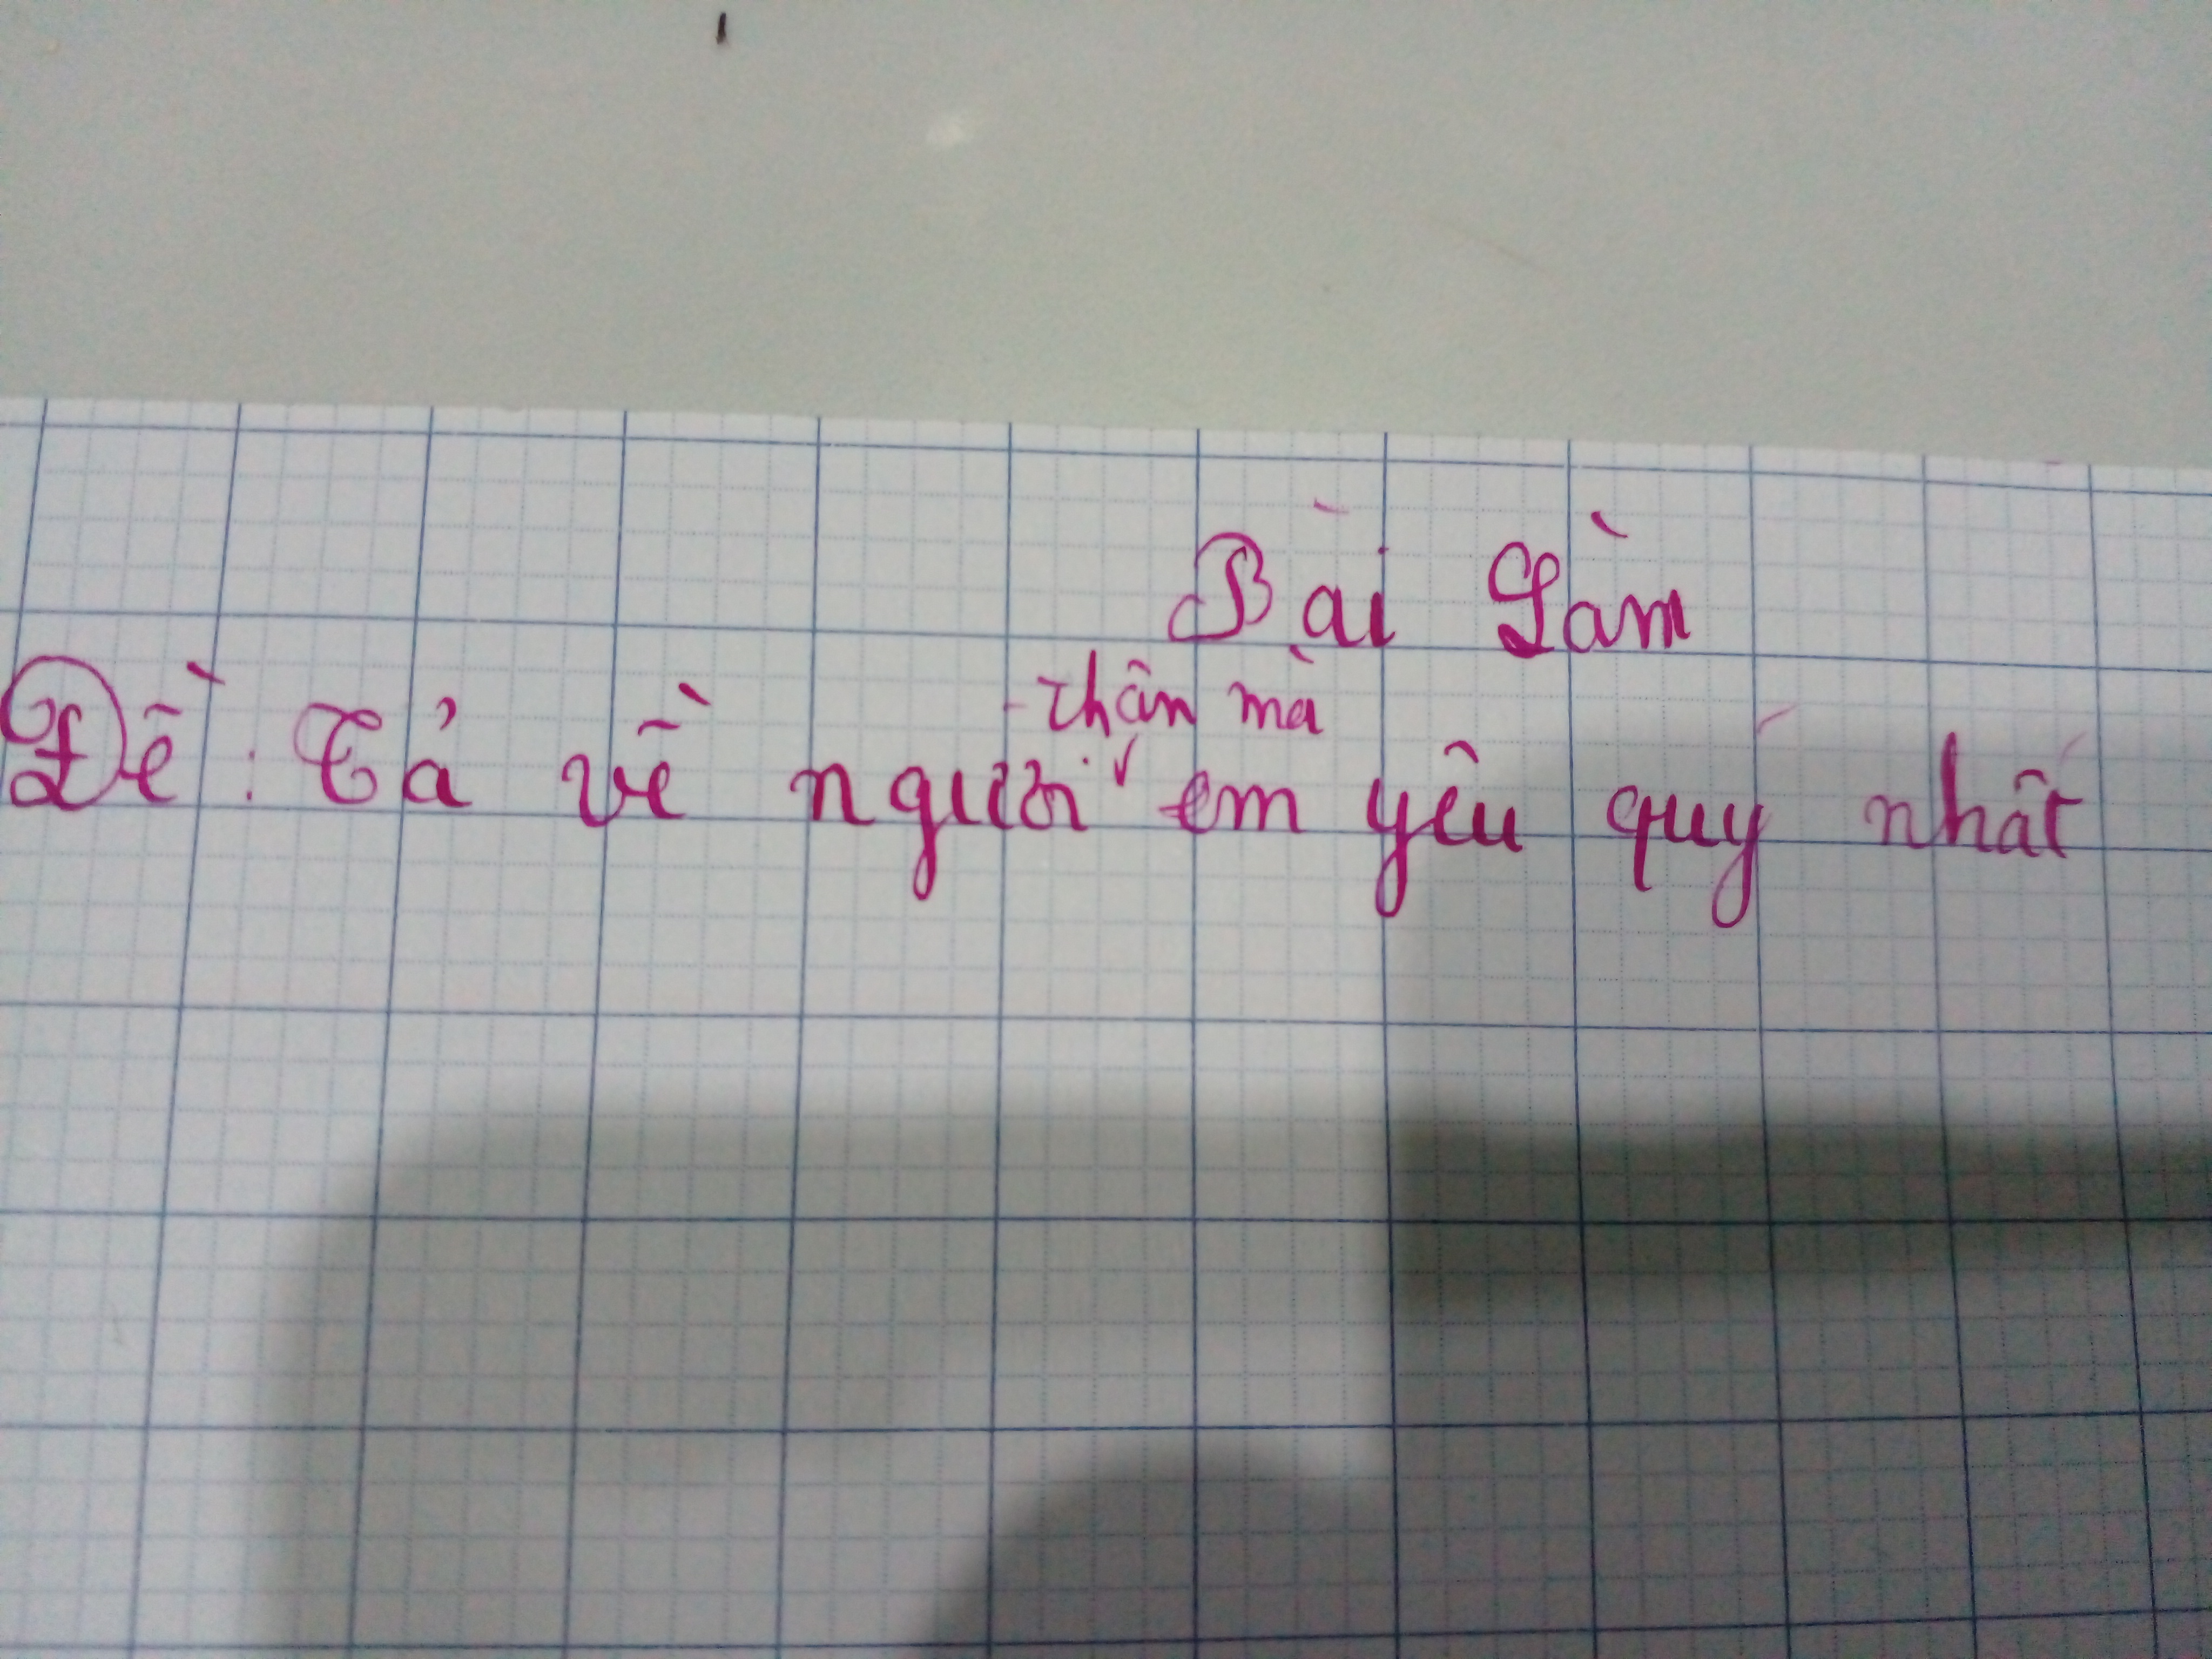 Bài Làm
thân mà
Đề: Tả về người em yêu quý nhất